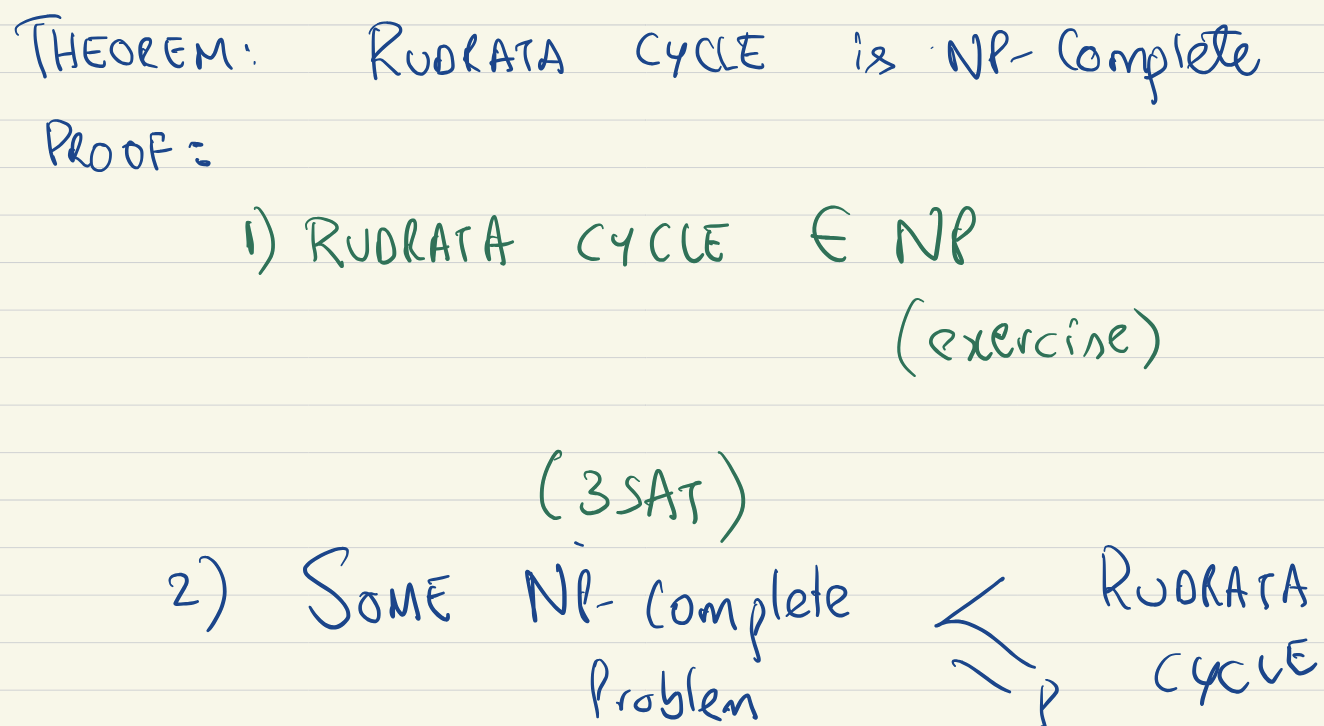 THEOREM: RUDRATA CYCLE is NP-Complete
PROOF:
1) RUDRATA CYCLE ∈ NP
(exercise)
(3SAT)
2) SOME NP-Complete ≤p RUDRATA
Problem CYCLE